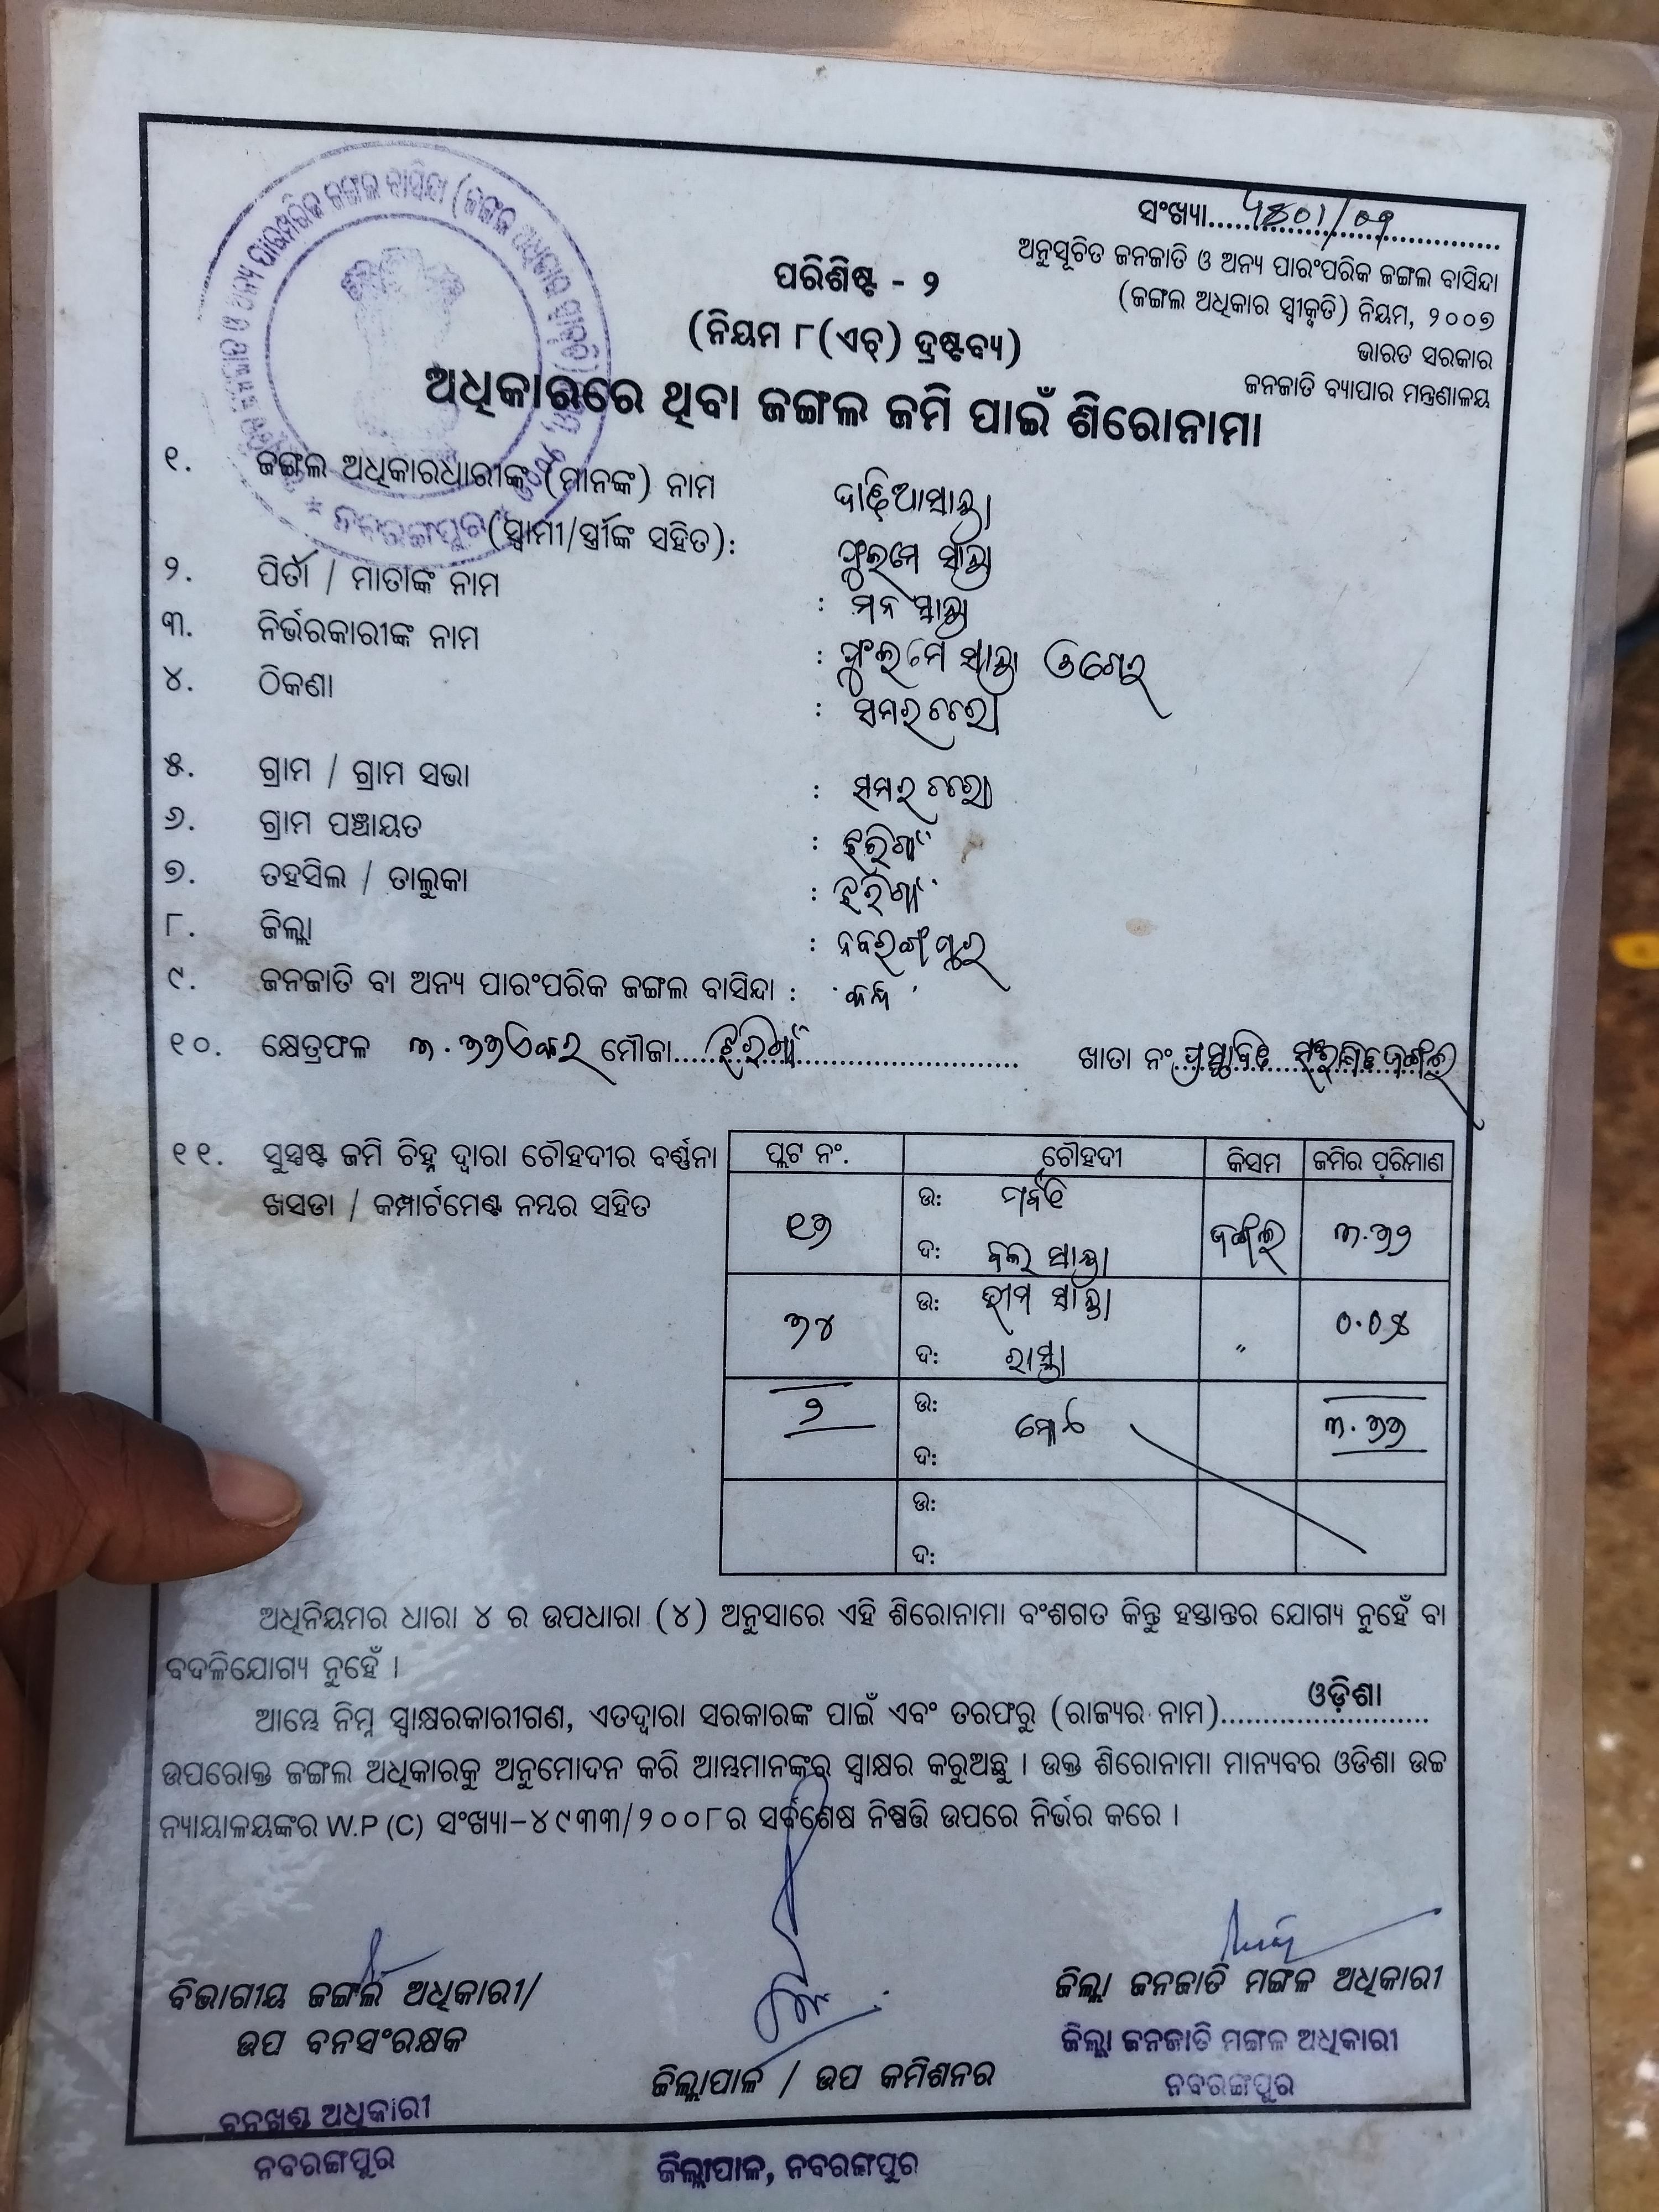 ସଂଖ୍ୟା
ଅନୁସୂଚିତ ଜନଜାତି ଓ ଅନ୍ୟ ପାରଂପରିକ ଜଙ୍ଗଲ ବାସିନ୍ଦା
(ଜଙ୍ଗଲ ଅଧିକାର ସ୍ୱୀକୃତି) ନିୟମ, ୨୦୦୭
ଭାରତ ସରକାର
ଜନଜାତି ବ୍ୟାପାର ମନ୍ତ୍ରଣାଳୟ
ପରିଶିଷ୍ଟ - ୨
(ନିୟମ ୮(ଏଚ୍) ଦ୍ରଷ୍ଟବ୍ୟ)
ଅଧିକାରରେ ଥିବା ଜଙ୍ଗଲ ଜମି ପାଇଁ ଶିରୋନାମା
୧. ଜଙ୍ଗଲ ଅଧିକାରଧାରୀଙ୍କ (ମାନଙ୍କ) ନାମ
(ସ୍ୱାମୀ/ସ୍ତ୍ରୀଙ୍କ ସହିତ):
୨. ପିତା / ମାତାଙ୍କ ନାମ :
୩. ନିର୍ଭରକାରୀଙ୍କ ନାମ :
୪. ଠିକଣା :
୫. ଗ୍ରାମ / ଗ୍ରାମ ସଭା :
୬. ଗ୍ରାମ ପଞ୍ଚାୟତ : ଝରିଗାଁ
୭. ତହସିଲ / ତାଲୁକା : ଝରିଗାଁ
୮. ଜିଲ୍ଲା : ନବରଙ୍ଗପୁର
୯. ଜନଜାତି ବା ଅନ୍ୟ ପାରଂପରିକ ଜଙ୍ଗଲ ବାସିନ୍ଦା :
୧୦. କ୍ଷେତ୍ରଫଳ ୩.୭୭ଏକର ମୌଜା ଝରିଗାଁ ଖାତା ନଂ
୧୧. ସୁସ୍ପଷ୍ଟ ଜମି ଚିହ୍ନ ଦ୍ୱାରା ଚୌହଦୀର ବର୍ଣ୍ଣନା
ଖସଡା / କମ୍ପାର୍ଟମେଣ୍ଟ ନମ୍ବର ସହିତ
ପ୍ଲଟ ନଂ. ଚୌହଦୀ କିସମ ଜମିର ପରିମାଣ
୧୭ ଉ: ଜଙ୍ଗଲ ୩.୭୨
ଦ:
୭୪ ଉ: ଭୀମ ୦.୦୫
ଦ: ରାସ୍ତା
୨ ଉ: ମୋଟ ୩.୭୭
ଦ:
ଉ:
ଦ:
ଅଧିନିୟମର ଧାରା ୪ ର ଉପଧାରା (୪) ଅନୁସାରେ ଏହି ଶିରୋନାମା ବଂଶଗତ କିନ୍ତୁ ହସ୍ତାନ୍ତର ଯୋଗ୍ୟ ନୁହେଁ ବା
ବଦଳିଯୋଗ୍ୟ ନୁହେଁ ।
ଆମ୍ଭେ ନିମ୍ନ ସ୍ୱାକ୍ଷରକାରୀଗଣ, ଏତଦ୍ୱାରା ସରକାରଙ୍କ ପାଇଁ ଏବଂ ତରଫରୁ (ରାଜ୍ୟର ନାମ) ଓଡ଼ିଶା
ଉପରୋକ୍ତ ଜଙ୍ଗଲ ଅଧିକାରକୁ ଅନୁମୋଦନ କରି ଆମ୍ଭମାନଙ୍କର ସ୍ୱାକ୍ଷର କରୁଅଛୁ । ଉକ୍ତ ଶିରୋନାମା ମାନ୍ୟବର ଓଡିଶା ଉଚ୍ଚ
ନ୍ୟାୟାଳୟଙ୍କର W.P (C) ସଂଖ୍ୟା-୪୯୩୩/୨୦୦୮ର ସର୍ବଶେଷ ନିଷ୍ପତ୍ତି ଉପରେ ନିର୍ଭର କରେ ।
ବିଭାଗୀୟ ଜଙ୍ଗଲ ଅଧିକାରୀ/
ଉପ ବନସଂରକ୍ଷକ
ବନଖଣ୍ଡ ଅଧିକାରୀ
ନବରଙ୍ଗପୁର
ଜିଲ୍ଲାପାଳ / ଉପ କମିଶନର
ଜିଲ୍ଲାପାଳ, ନବରଙ୍ଗପୁର
ଜିଲ୍ଲା ଜନଜାତି ମଙ୍ଗଳ ଅଧିକାରୀ
ଜିଲ୍ଲା ଜନଜାତି ମଙ୍ଗଳ ଅଧିକାରୀ
ନବରଙ୍ଗପୁର